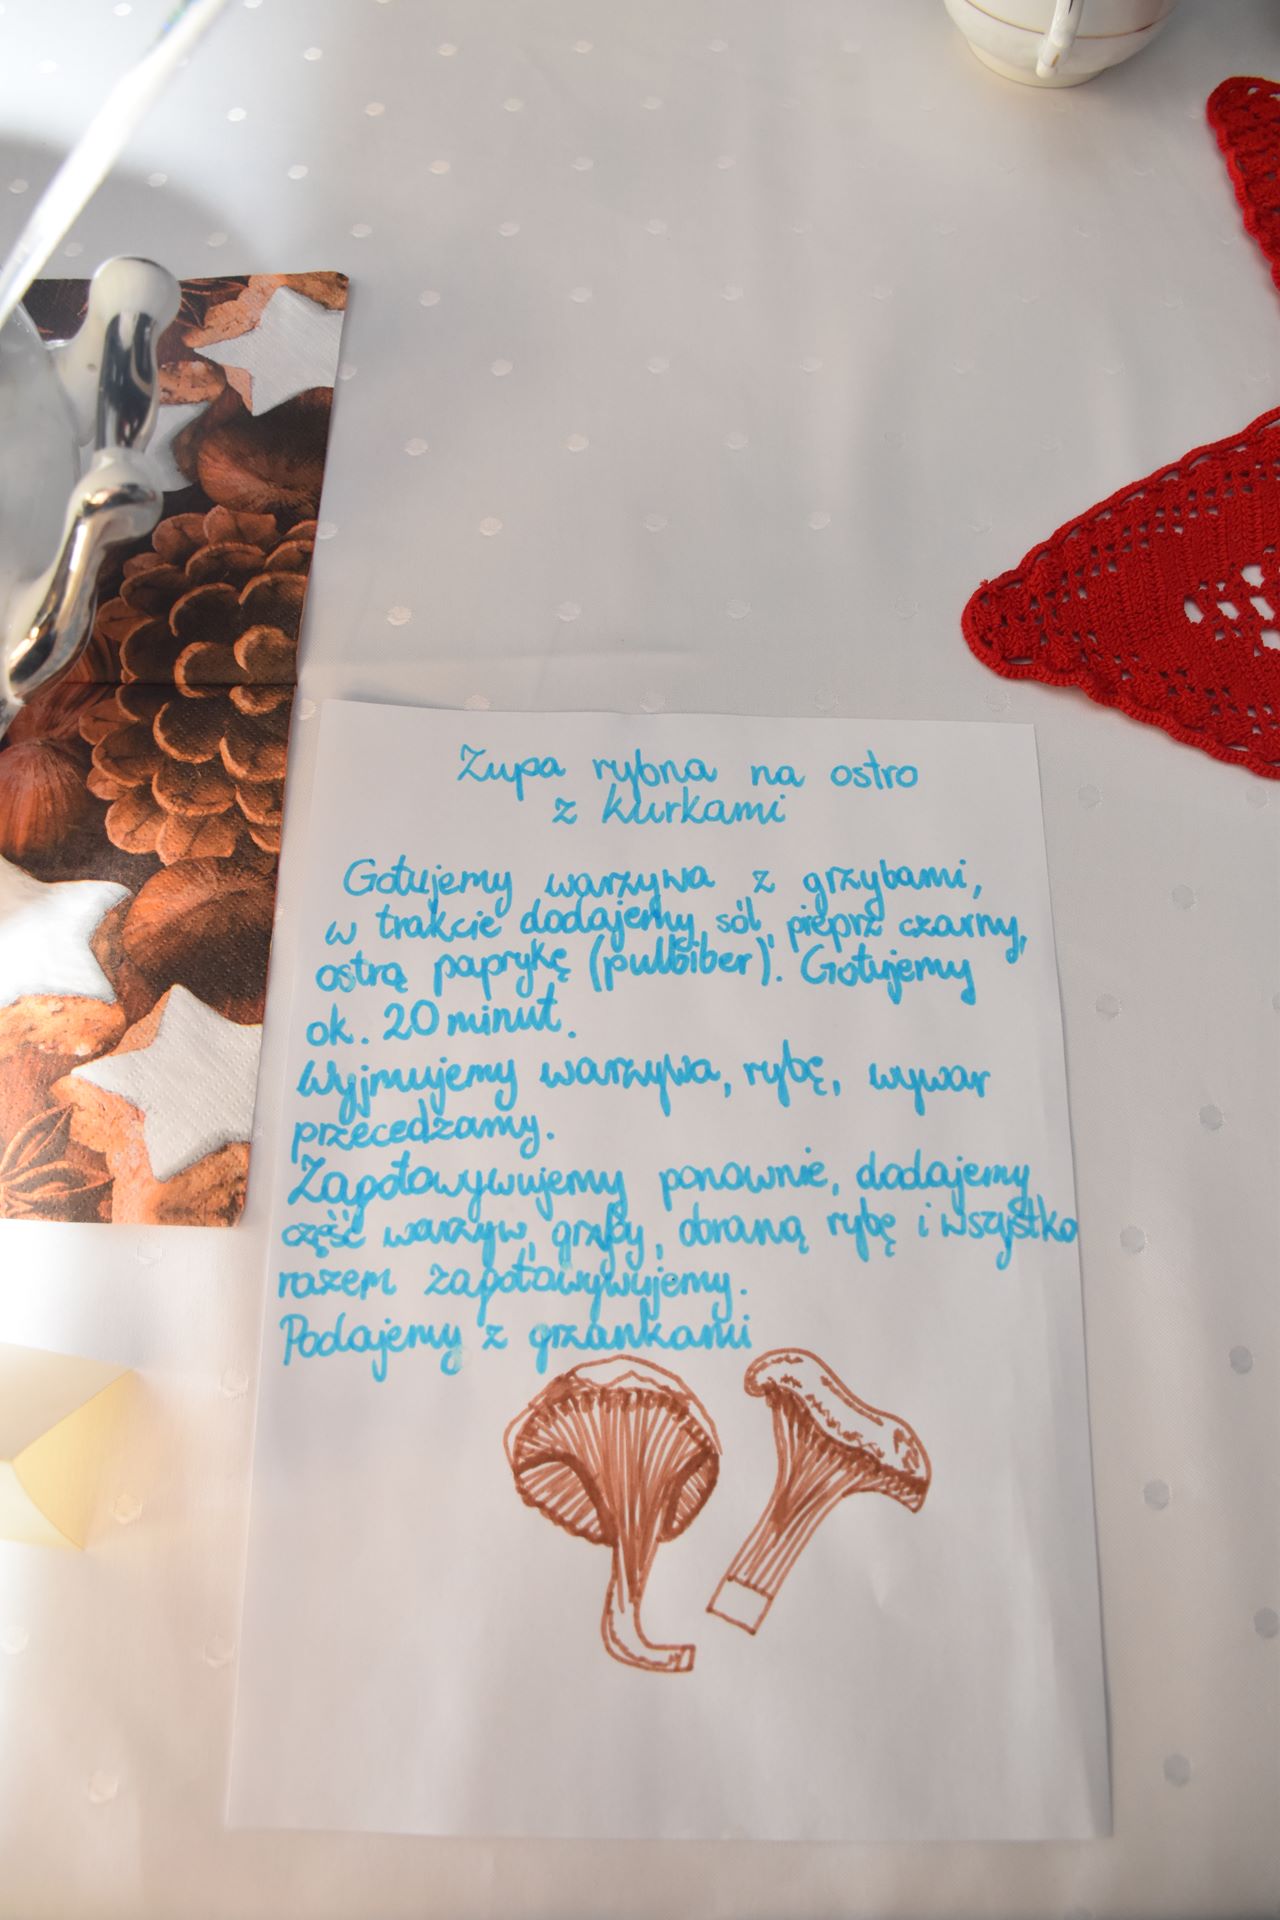 Zupa rybna na ostro
z kurkami
Gotujemy warzywa z grzybami,
w trakcie dodajemy sól, pieprz czarny,
ostrą paprykę (pulbiber). Gotujemy
ok. 20 minut.
Wyjmujemy warzywa, rybę, wywar
przecedzamy.
Zagotowywujemy ponownie, dodajemy
część warzyw, grzyby, obraną rybę i wszystko
razem zagotowywujemy.
Podajemy z grzankami